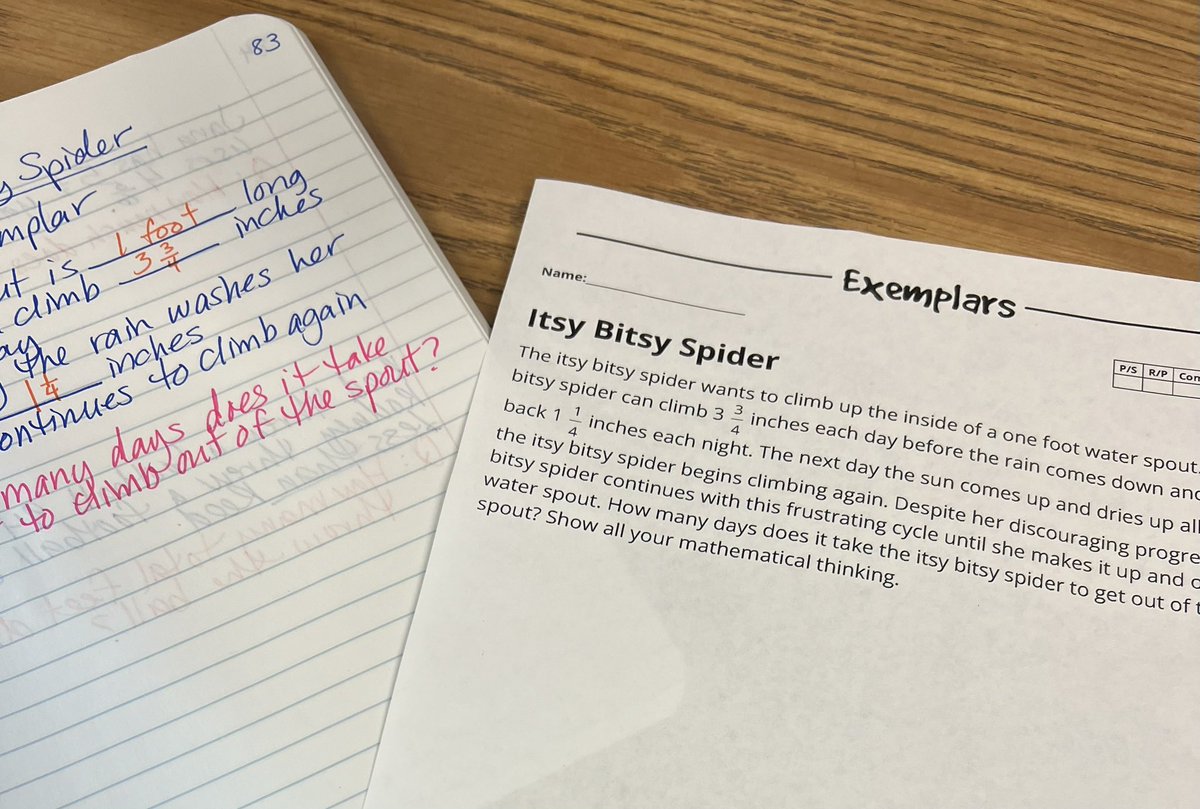 83
Spider
mplar
ut is 1 foot long
climb 3 3/4 inches
ay
the rain washes her
1 1/4 inches
ontinues to climb again
many days does it take
to climb out of the spout?
Exemplars
Name:
P/S R/P Com
Itsy Bitsy Spider
The itsy bitsy spider wants to climb up the inside of a one foot water spout.
bitsy spider can climb 3 3/4 inches each day before the rain comes down and
back 1 1/4 inches each night. The next day the sun comes up and dries up all
the itsy bitsy spider begins climbing again. Despite her discouraging progre
bitsy spider continues with this frustrating cycle until she makes it up and o
water spout. How many days does it take the itsy bitsy spider to get out of t
spout? Show all your mathematical thinking.